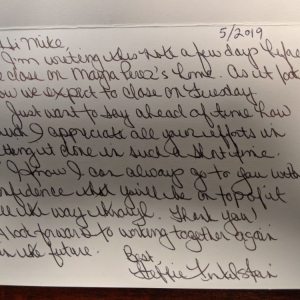 5/2019
Hi Mike,
I'm writing this note a few days before
close on Mayra Perez's home. As it
now we expect to close on Tuesday.
Just want to say ahead of time how
much I appreciate all your efforts in
getting it done in such a short time.
I know I can always go to you with
confidence that you'll be on top of it
all the way through. Thank you!
I look forward to working together again
in the future.
Best,